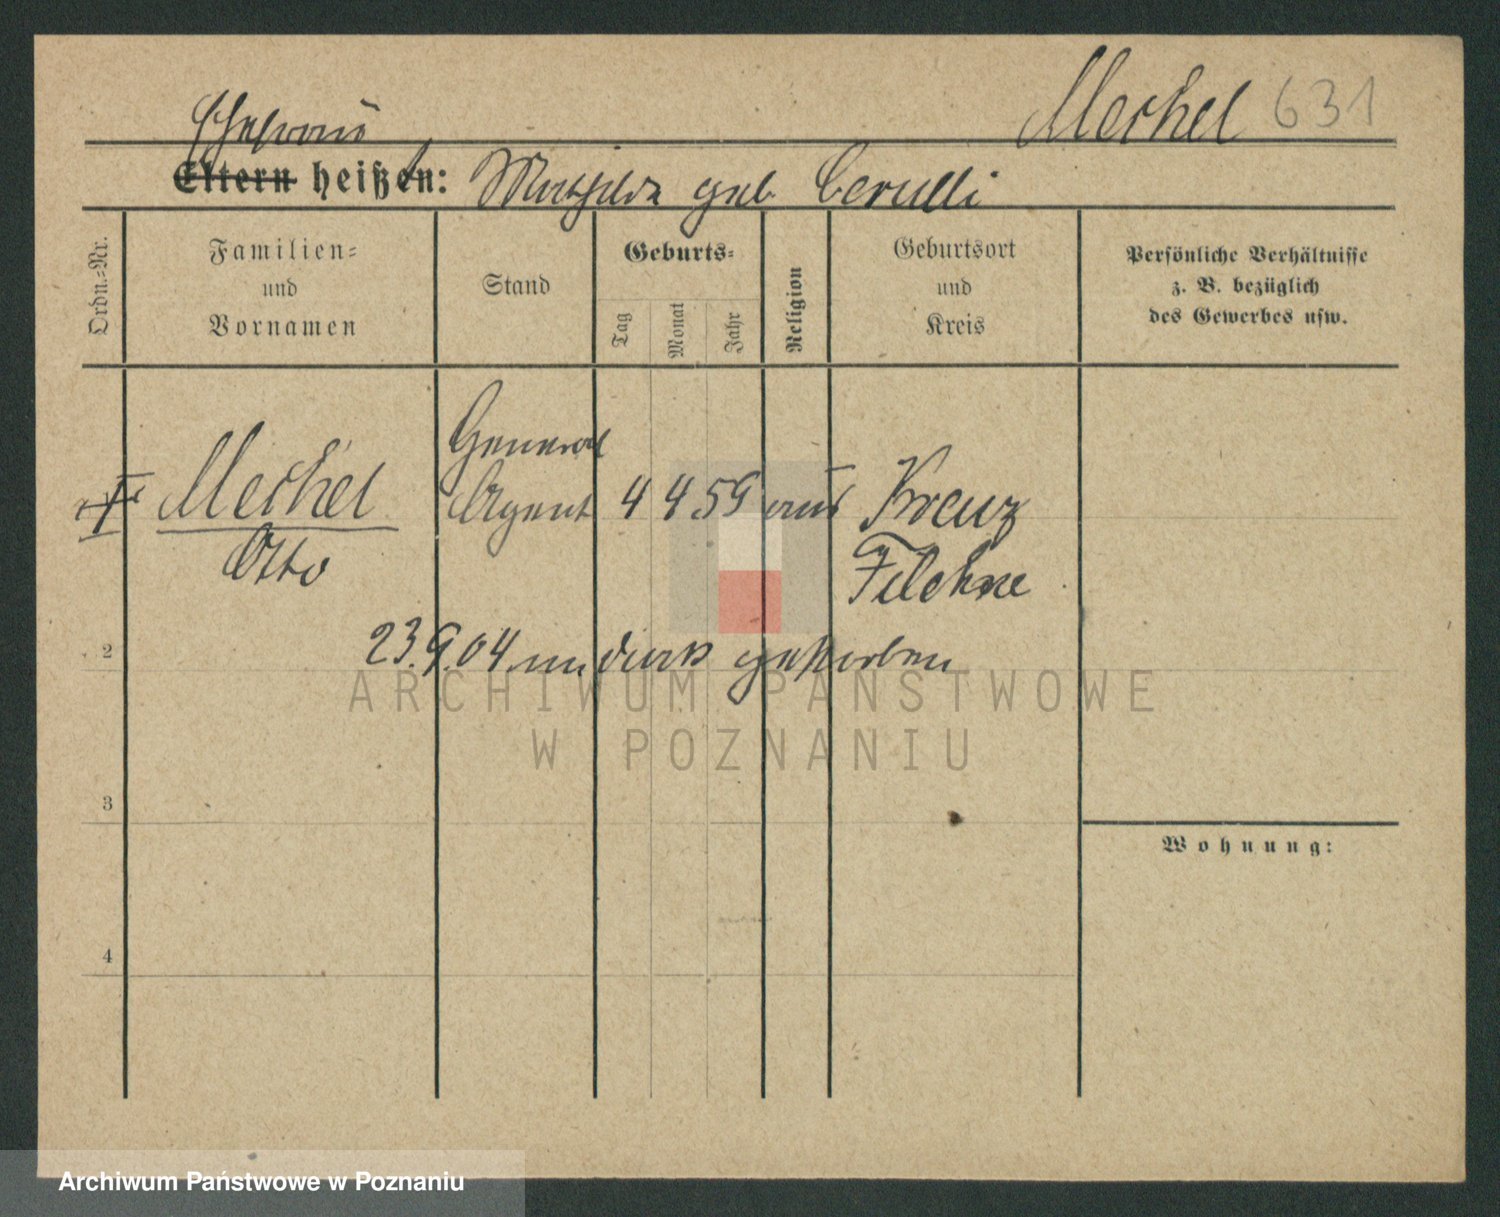 Merkel 631
Ehefrau
Eltern heißt: Mathilde geb. Cerulli
Ordn.=Nr.
Familien=
und
Vornamen
Stand
Geburts=
Tag
Monat
Jahr
Religion
Geburtsort
und
Kreis
Persönliche Verhältnisse
z. B. bezüglich
des Gewerbes usw.
Merkel
Otto
General
Agent
4 4 59
Kreuz
Filehne
2
23.9.04 gestorben
ARCHIWUM PAŃSTWOWE
W POZNANIU
3
Wohnung:
4
Archiwum Państwowe w Poznaniu